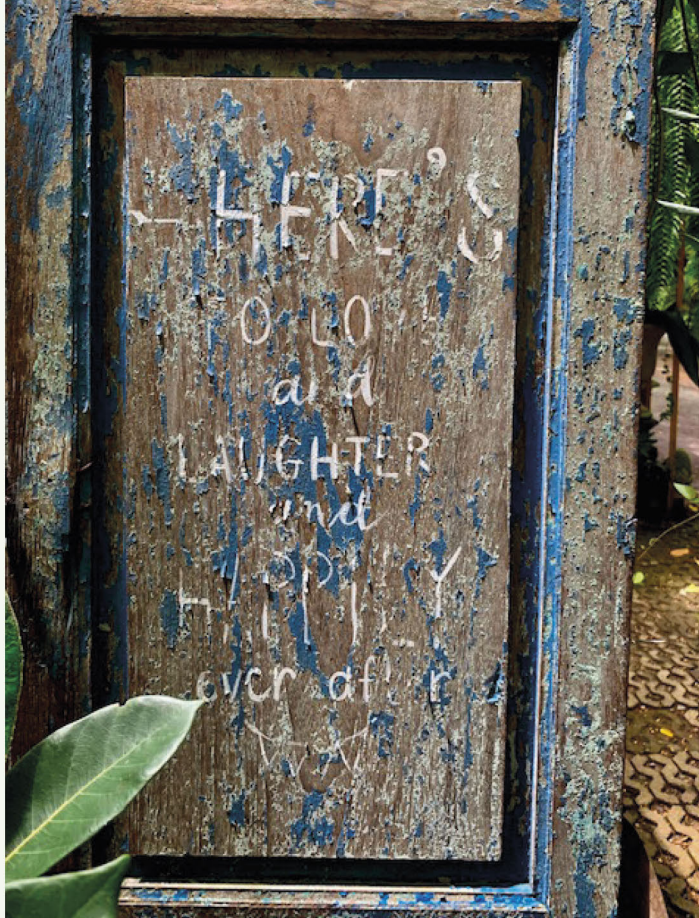 HERE'S
TO LOVE
and
LAUGHTER
and
HAPPILY
ever after